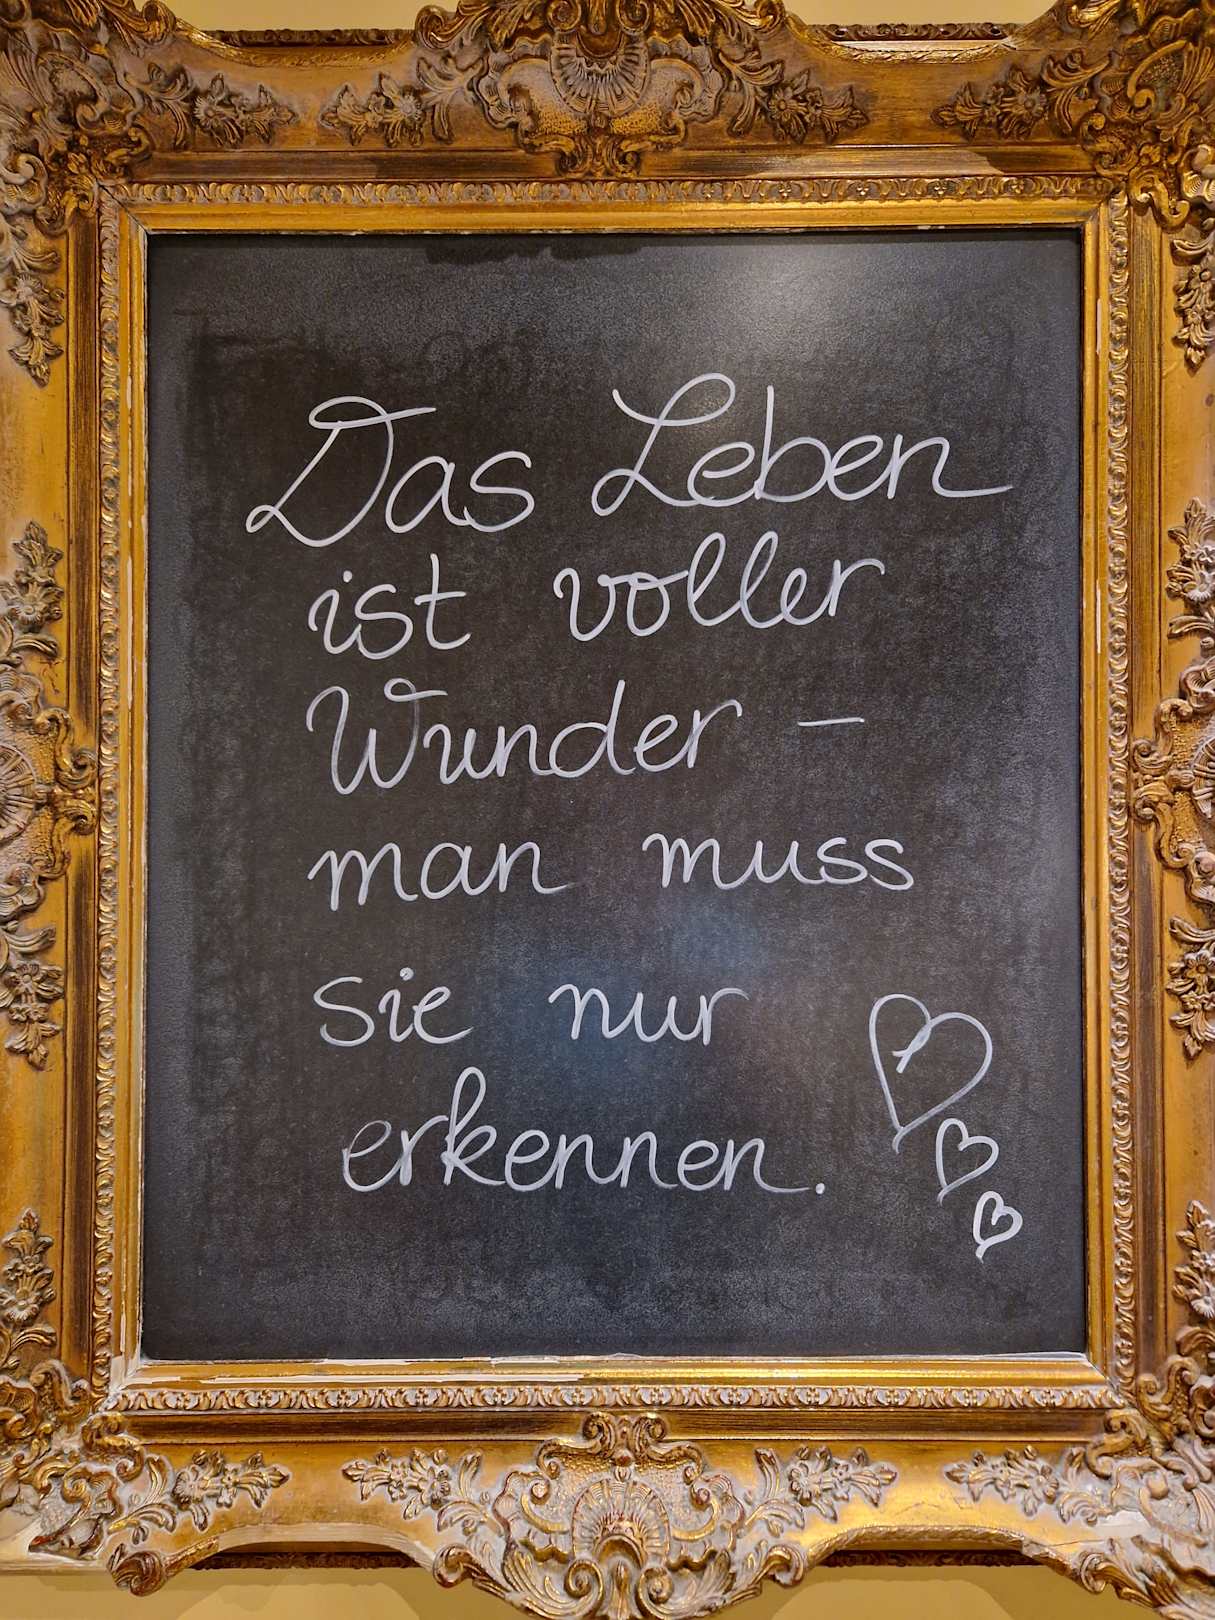 Das Leben
ist voller
Wunder –
man muss
sie nur
erkennen.